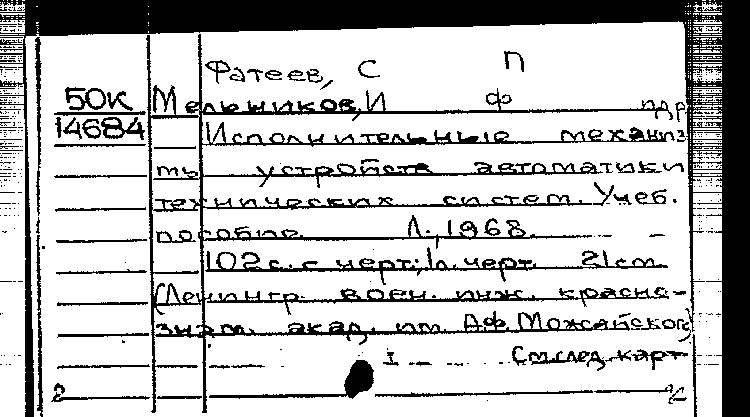 Фатеев, С П
50К Мельников, И Ф и др
14684 Исполнительные механиз
мы устройств автоматики
технических систем. Учеб.
пособие. Л., 1968.
102 с. с черт.; 1 л. черт. 21 см.
(Ленингр. воен. инж. красно-
знам. акад. им. А.Ф. Можайского)
См. след. карт